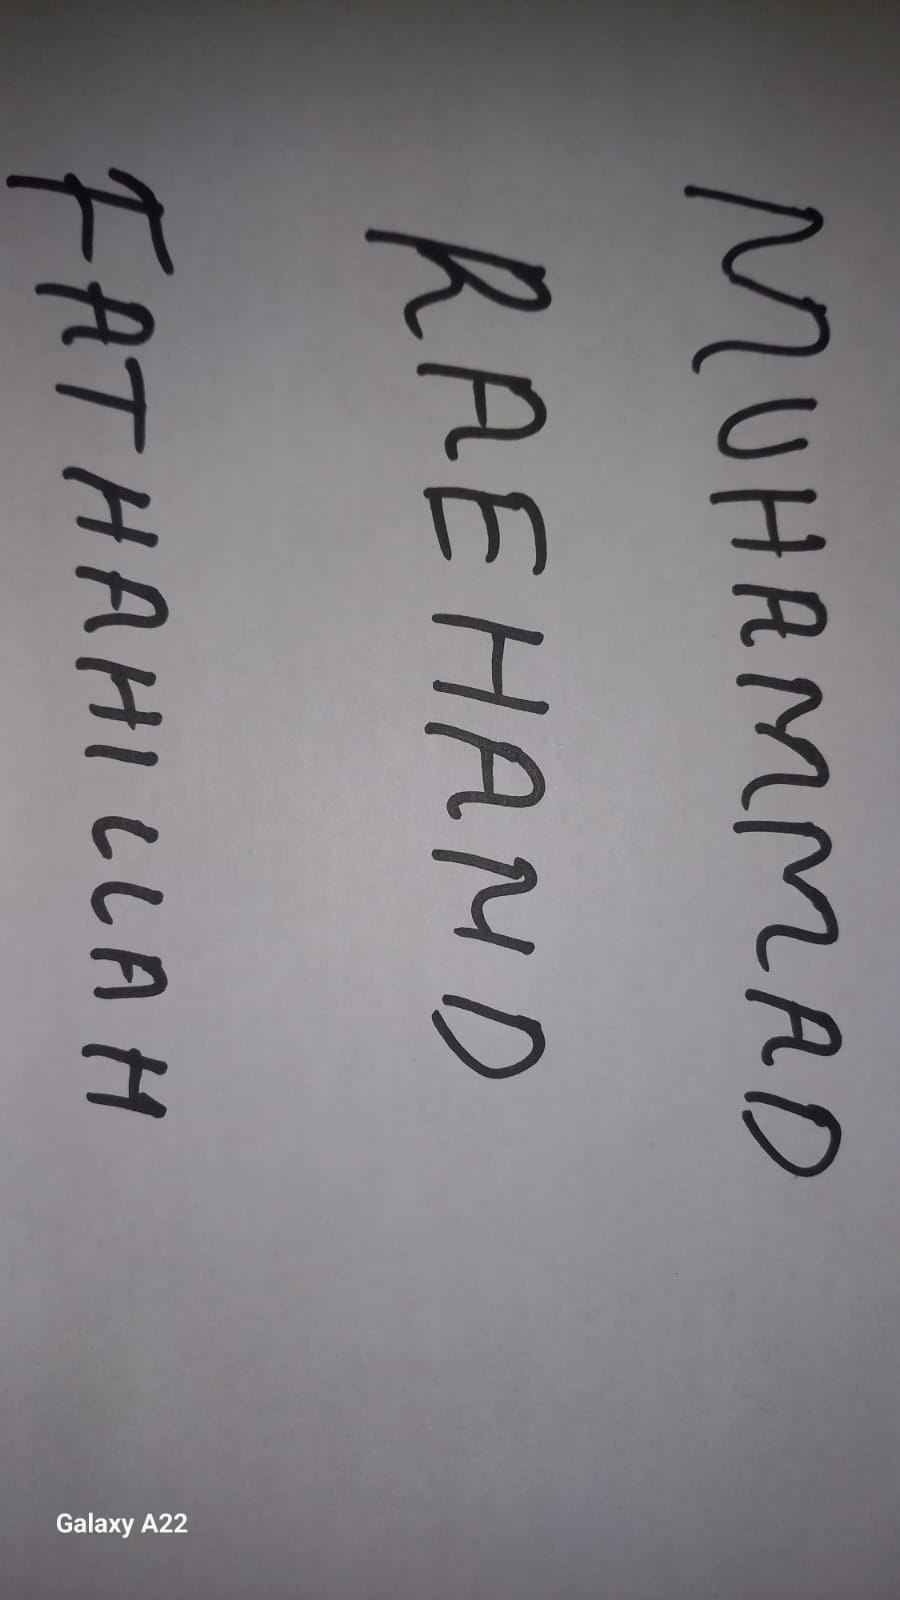 MUHAMMAD
RAEHAND
FATHAHILLAH
Galaxy A22